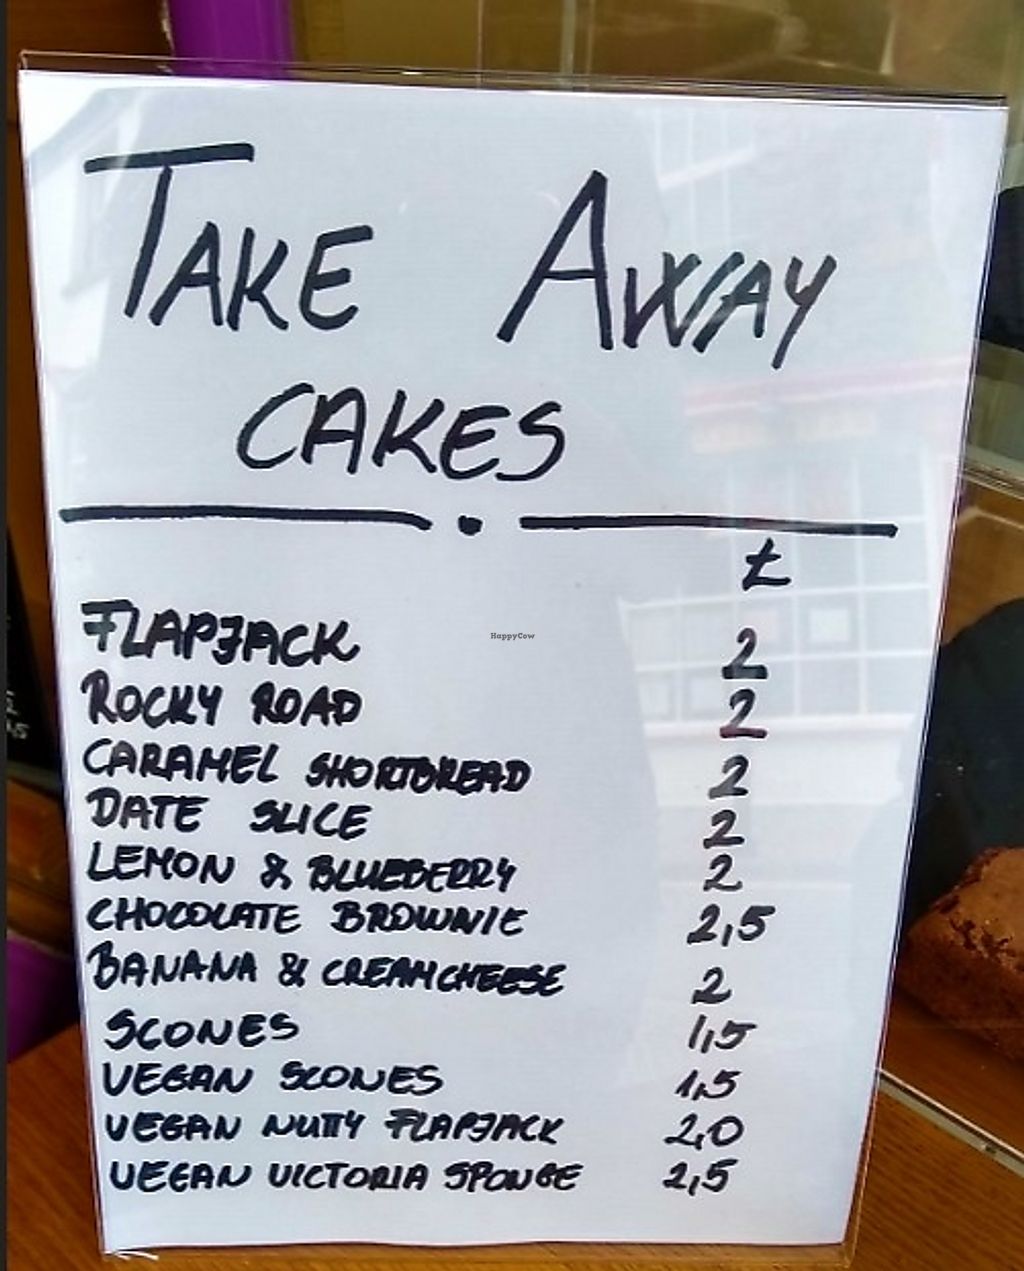 TAKE AWAY
CAKES
£
FLAPJACK 2
ROCKY ROAD 2
CARAMEL SHORTBREAD 2
DATE SLICE 2
LEMON & BLUEBERRY 2
CHOCOLATE BROWNIE 2,5
BANANA & CREAMCHEESE 2
SCONES 1,5
VEGAN SCONES 1,5
VEGAN NUTTY FLAPJACK 2,0
VEGAN VICTORIA SPONGE 2,5
HappyCow